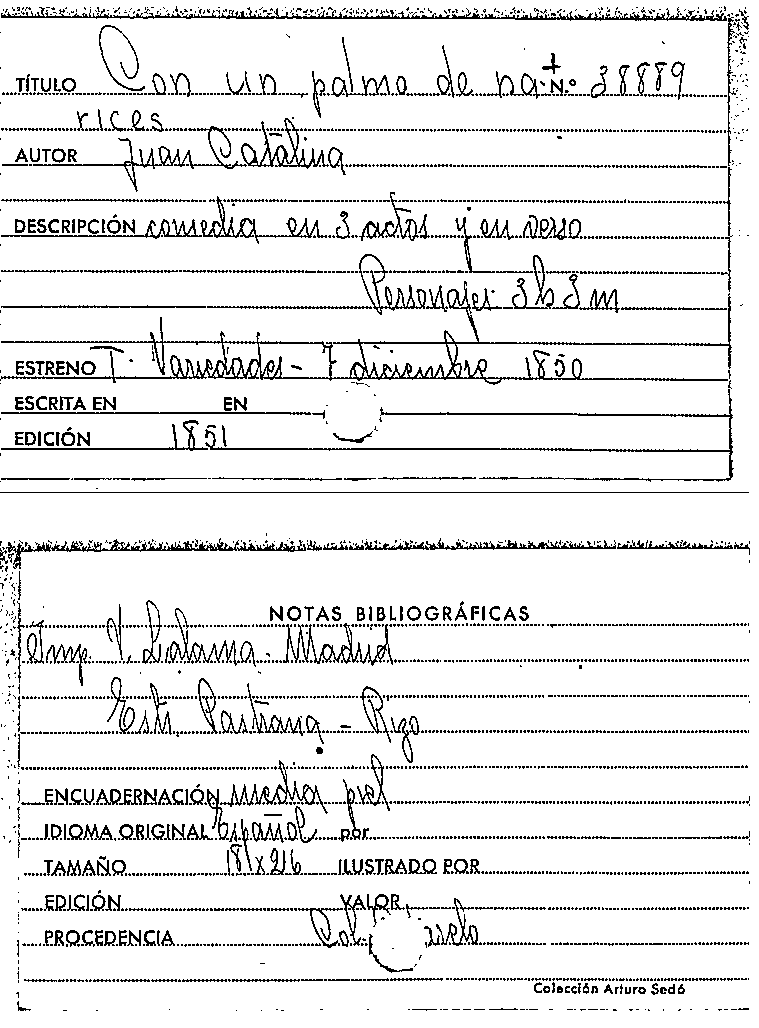 TÍTULO Con un palmo de na- N.º 38889
rices
AUTOR Juan Catalina
DESCRIPCIÓN comedia en 3 actos y en verso
Personajes 3 h 3 m
ESTRENO T. Variedades - 7 diciembre 1850
ESCRITA EN EN
EDICIÓN 1851
NOTAS BIBLIOGRÁFICAS
Imp. V. Lalama. Madrid
Estr. Pastrana - Rizo
ENCUADERNACIÓN media piel
IDIOMA ORIGINAL Español por
TAMAÑO 181x216 ILUSTRADO POR
EDICIÓN VALOR
PROCEDENCIA Col.
Colección Arturo Sedó